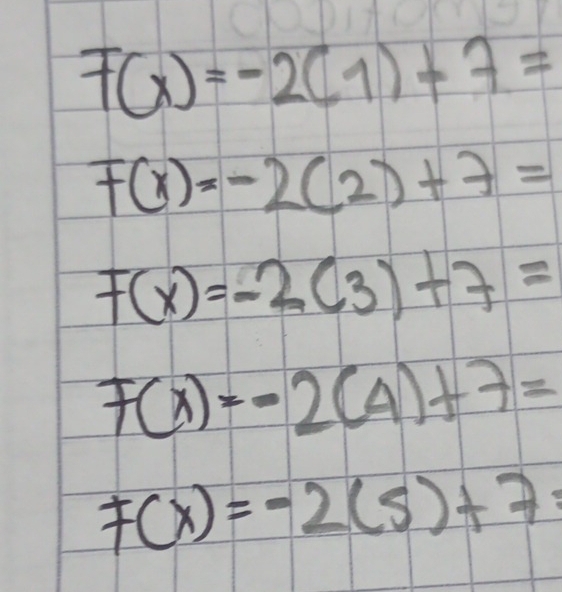 F(x)=-2(1)+7=
F(x)=-2(2)+7=
F(x)=-2(3)+7=
F(x)=-2(4)+7=
F(x)=-2(5)+7=